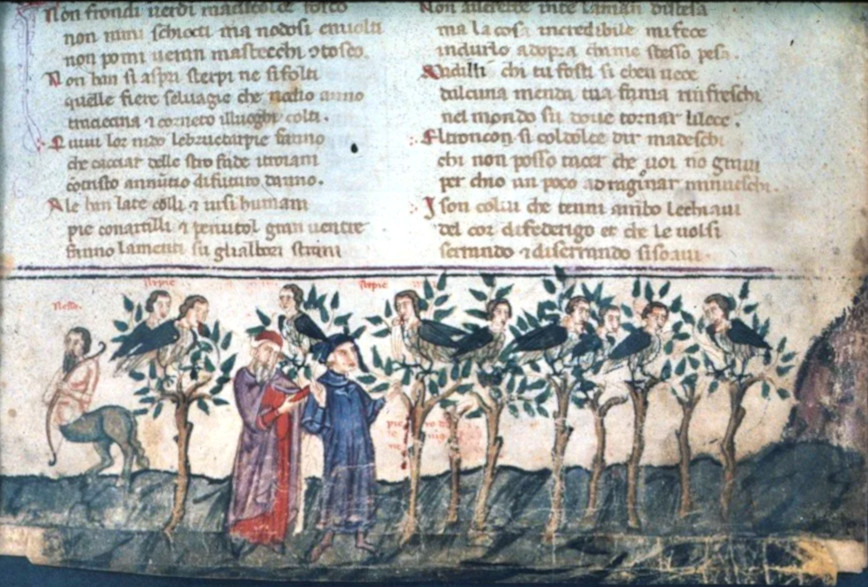 Non frondi uerdi madicolore fosco
non rami schietti ma nodosi enuolti
non pomi ueran mastecchi 9tosco.
Non han si aspri sterpi ne sifolti
quelle fiere seluagie che nodio anno
tracecina 7 corneto illuoghi colti.
Quiui lor nido lebructarpie fanno
che cacciar delle strofade itroiani
contristo annutio difuturo danno.
Ale han late colli 7 uisi humani
pie conartilli 7 pennutol gran uentre
fanno lamenti su glialberi strani
Non auerebbe inte laman distesa
ma la cosa incredibile mi fece
indurlo adopra chame stesso pesa.
Ma dilli chi tu fosti si cheu uece
dalcuna menda tua fama rinfreschi
nel mondo su doue tornar lilece.
El troncon si coldolce dir madeschi
chi non posso tacer che uoi no graui
per chio un poco a ragionar minueschi.
I son colui che tenni ambo lechiaui
del cor difederigo et che le uolsi
serrando 7 diserrando si soaui.
arpie
arpie